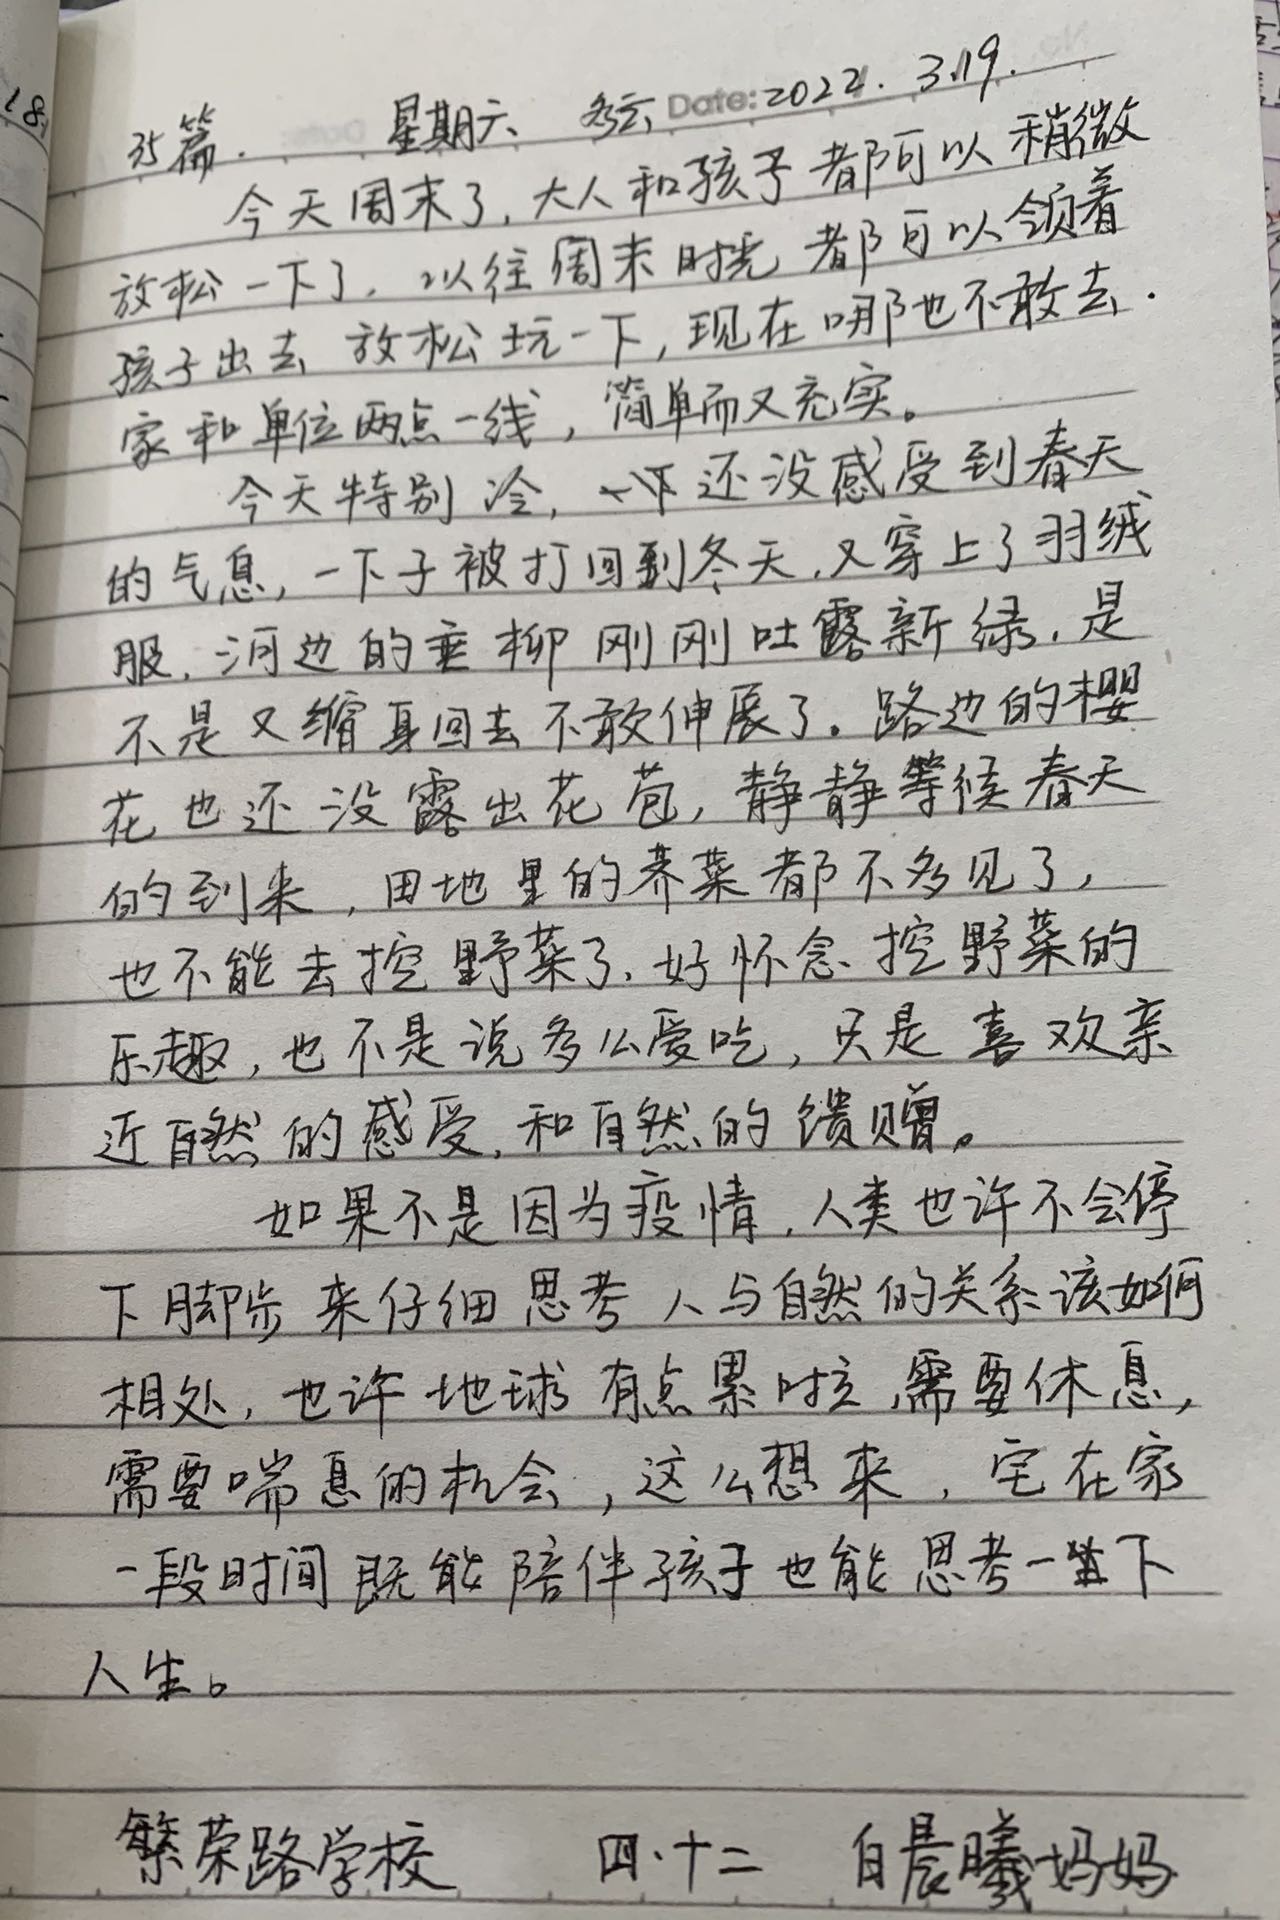 18.
35篇. 星期六 多云 Date: 2022. 3.19.
今天周末了, 大人和孩子都可以稍微
放松一下了, 以往周末时光都可以领着
孩子出去放松玩一下, 现在哪也不敢去.
家和单位两点一线, 简单而又充实。
今天特别冷, 还没感受到春天
的气息, 一下子被打回到冬天, 又穿上了羽绒
服, 河边的垂柳刚刚吐露新绿, 是
不是又缩身回去不敢伸展了。路边的樱
花也还没露出花苞, 静静等候春天
的到来, 田地里的荠菜都不多见了,
也不能去挖野菜了, 好怀念挖野菜的
乐趣, 也不是说多么爱吃, 只是喜欢亲
近自然的感受, 和自然的馈赠。
如果不是因为疫情, 人类也许不会停
下脚步来仔细思考人与自然的关系该如何
相处, 也许地球有点累时, 需要休息,
需要喘息的机会, 这么想来, 宅在家
一段时间既能陪伴孩子也能思考一下
人生。
繁荣路学校 四·十二 白晨曦妈妈